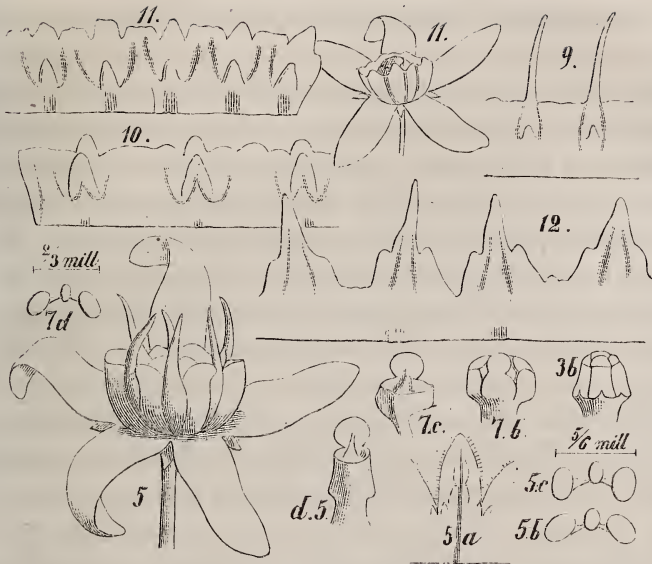 11.
11.
9.
10.
12.
2/3 mill
7d
7.c.
7.b.
3b
5/6 mill
5
d.5.
5 a
5.c
5.b